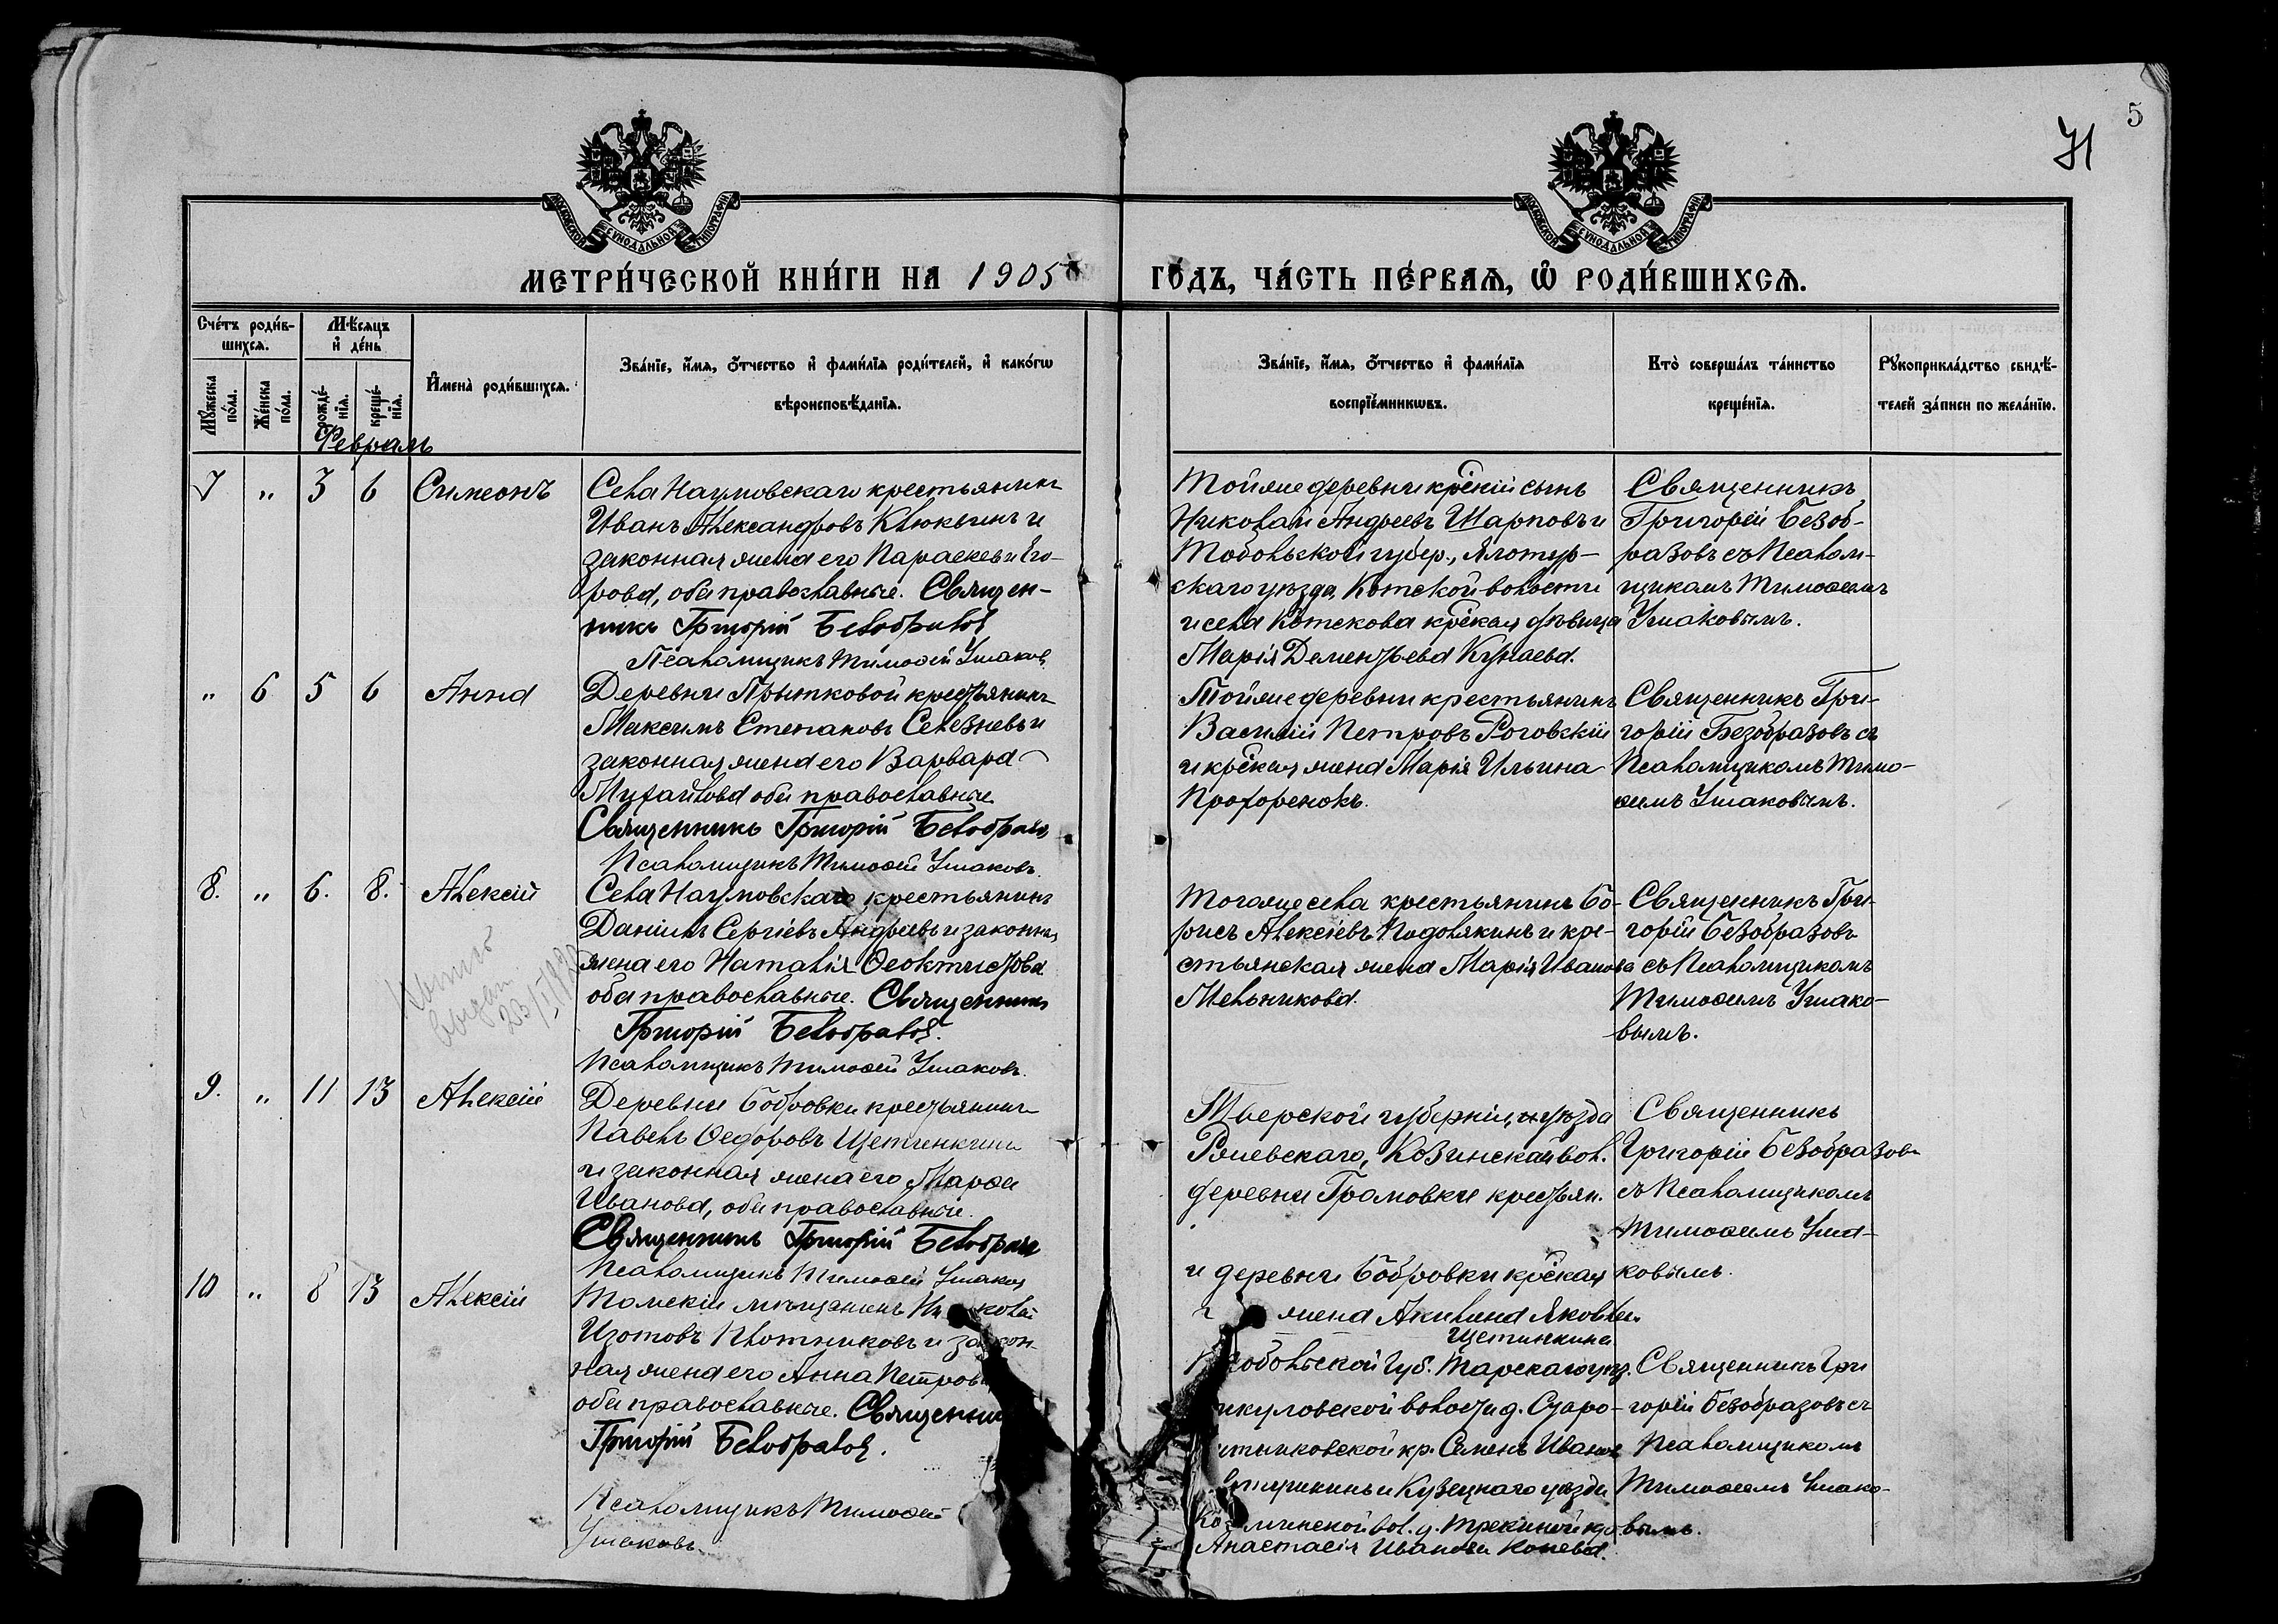 5
71
МОСКОВСКОЙ СѴНОДАЛЬНОЙ ТИПОГРАФІИ
МОСКОВСКОЙ СѴНОДАЛЬНОЙ ТИПОГРАФІИ
МЕТРИ́ЧЕСКОЙ КНИ́ГИ НА 1905
ГО́ДЪ, ЧА́СТЬ ПЕ́РВАѦ, Ѽ РОДИ́ВШИХСѦ.
Сче́тъ роди́в-
шихсѧ.
Мꙋ́жеска
по́ла.
Же́нска
по́ла.
Мѣ́сѧцъ
и҆ де́нь
рожде́-
нїѧ.
креще́-
нїѧ.
И҆мена̀ роди́вшихсѧ.
Зва́нїе, и҆́мѧ, ѻ҆́тчество и҆ фами́лїѧ роди́телей, и҆ како́гѡ
вѣроисповѣ́данїѧ.
Зва́нїе, и҆́мѧ, ѻ҆́тчество и҆ фами́лїѧ
воспрїе́мникѡвъ.
Кто̀ соверша́лъ та́инство
креще́нїѧ.
Рꙋкоприкла́дство свидѣ́-
телей за́писи по жела́нїю.
Февраль
7 " 3 6 Симеонъ
Села Наумовскаго крестьянинъ
Иванъ Александровъ Клюкинъ и
законная жена его Параскева Его-
рова, оба православные. Священ-
никъ Григорій Безобразов
Псаломщикъ Тимофей Ушаков
Тойже деревни крский сынъ
Николай Андреевъ Шарповъ и
Тобольской губер., Ялотур-
скаго уезда, Котской волости
и села Котскова крская девица
Марія Дементьева Кунаева.
Священникъ
Григорій Безоб-
разовъ съ Псалом-
щикомъ Тимофеемъ
Ушаковымъ.
" 6 5 6 Анна
Деревни Прытковой крестьянинъ
Максимъ Степановъ Селезневъ и
законная жена его Варвара
Михайлова оба православные.
Священникъ Григорій Безобразов
Псаломщикъ Тимофей Ушаковъ.
Тойже деревни крестьянинъ
Василій Петровъ Роговскій
и крская жена Марія Ильина
Прохоренокъ.
Священникъ Гри-
горій Безобразовъ съ
Псаломщикомъ Тимо-
феемъ Ушаковымъ.
8. " 6. 8. Алексій
Села Наумовскаго крестьянинъ
Даніилъ Сергіевъ Андреевъ и законная
жена его Наталія Феоктистова
оба православные. Священникъ
Григорій Безобразов.
Псаломщикъ Тимофей Ушаковъ.
Тогоже села крестьянинъ Бо-
рисъ Алексіевъ Подолякинъ и кре-
стьянская жена Марія Иванова
Мельникова.
Священникъ Гри-
горій Безобразовъ
съ Псаломщикомъ
Тимофеемъ Ушако-
вымъ.
выдан
9. " 11 13 Алексій
Деревни Бобровки крестьянинъ
Павелъ Федоровъ Щетинкинъ
и законная жена его Марфа
Иванова, оба православные.
Священникъ Григорій Безобразов
Псаломщикъ Тимофей Ушаков
Тверской губерніи, уезда
Ржевскаго, Козинской вол.
деревни Громовки крестьян.
и деревни Бобровки крская
жена Акилина Яковлева
Щетинкина
Священникъ
Григорій Безобразовъ
съ Псаломщикомъ
Тимофеемъ Уша-
ковымъ.
10 " 8 13 Алексій
Томскій мещанинъ Николай
Изотовъ Плотниковъ и закон-
ная жена его Анна Петров
оба православные. Священни
Григорій Безобразов.
Псаломщикъ Тимофей
Ушаковъ
Тобольской губ. Тарскаго уез.
икуловской волости д. Старо-
кр. Семенъ Иванов
и Кузнецкаго уезда
вол. д.
Анастасія Иванова Конева.
Священникъ Гри
горій Безобразовъ съ
Псаломщикомъ
Тимофеемъ Ушако-
вымъ.